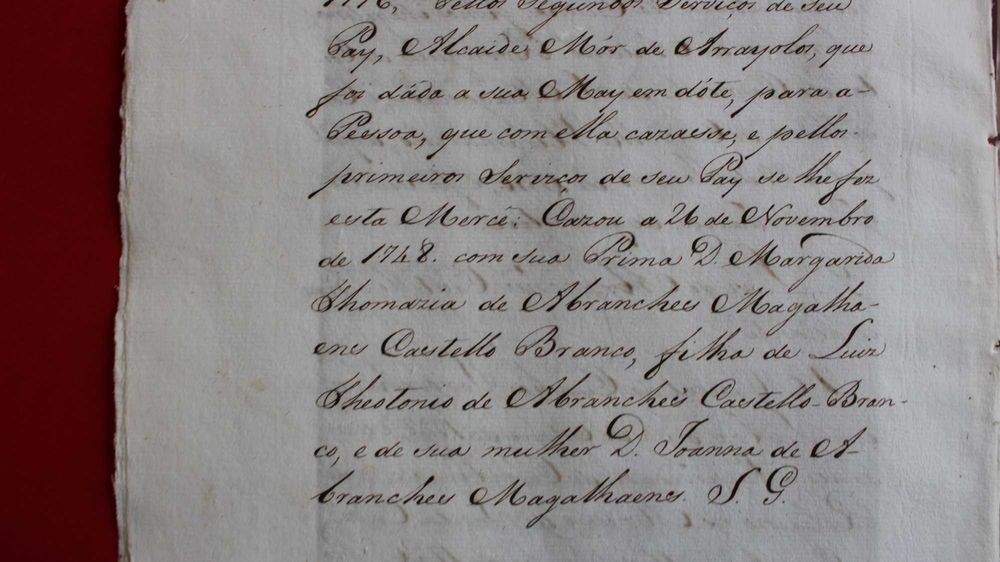 Pellos Segundos Serviços de seu
Pay, Alcaide Mór de Arrayolos, que
foi dáda a sua May em dóte, para a-
Pessoa, que com ella cazaesse, e pellos
primeiros Serviços de seu Pay se lhe fez
esta Mercê: Cazou a 26 de Novembro
de 1748. com sua Prima D. Margarida
Thomazia de Abranches Magalha-
ens Castello Branco, filha de Luiz
Theotonio de Abranches Castello-Bran-
co, e de sua mulher D. Joanna de A-
branches Magalhaens. S. G.